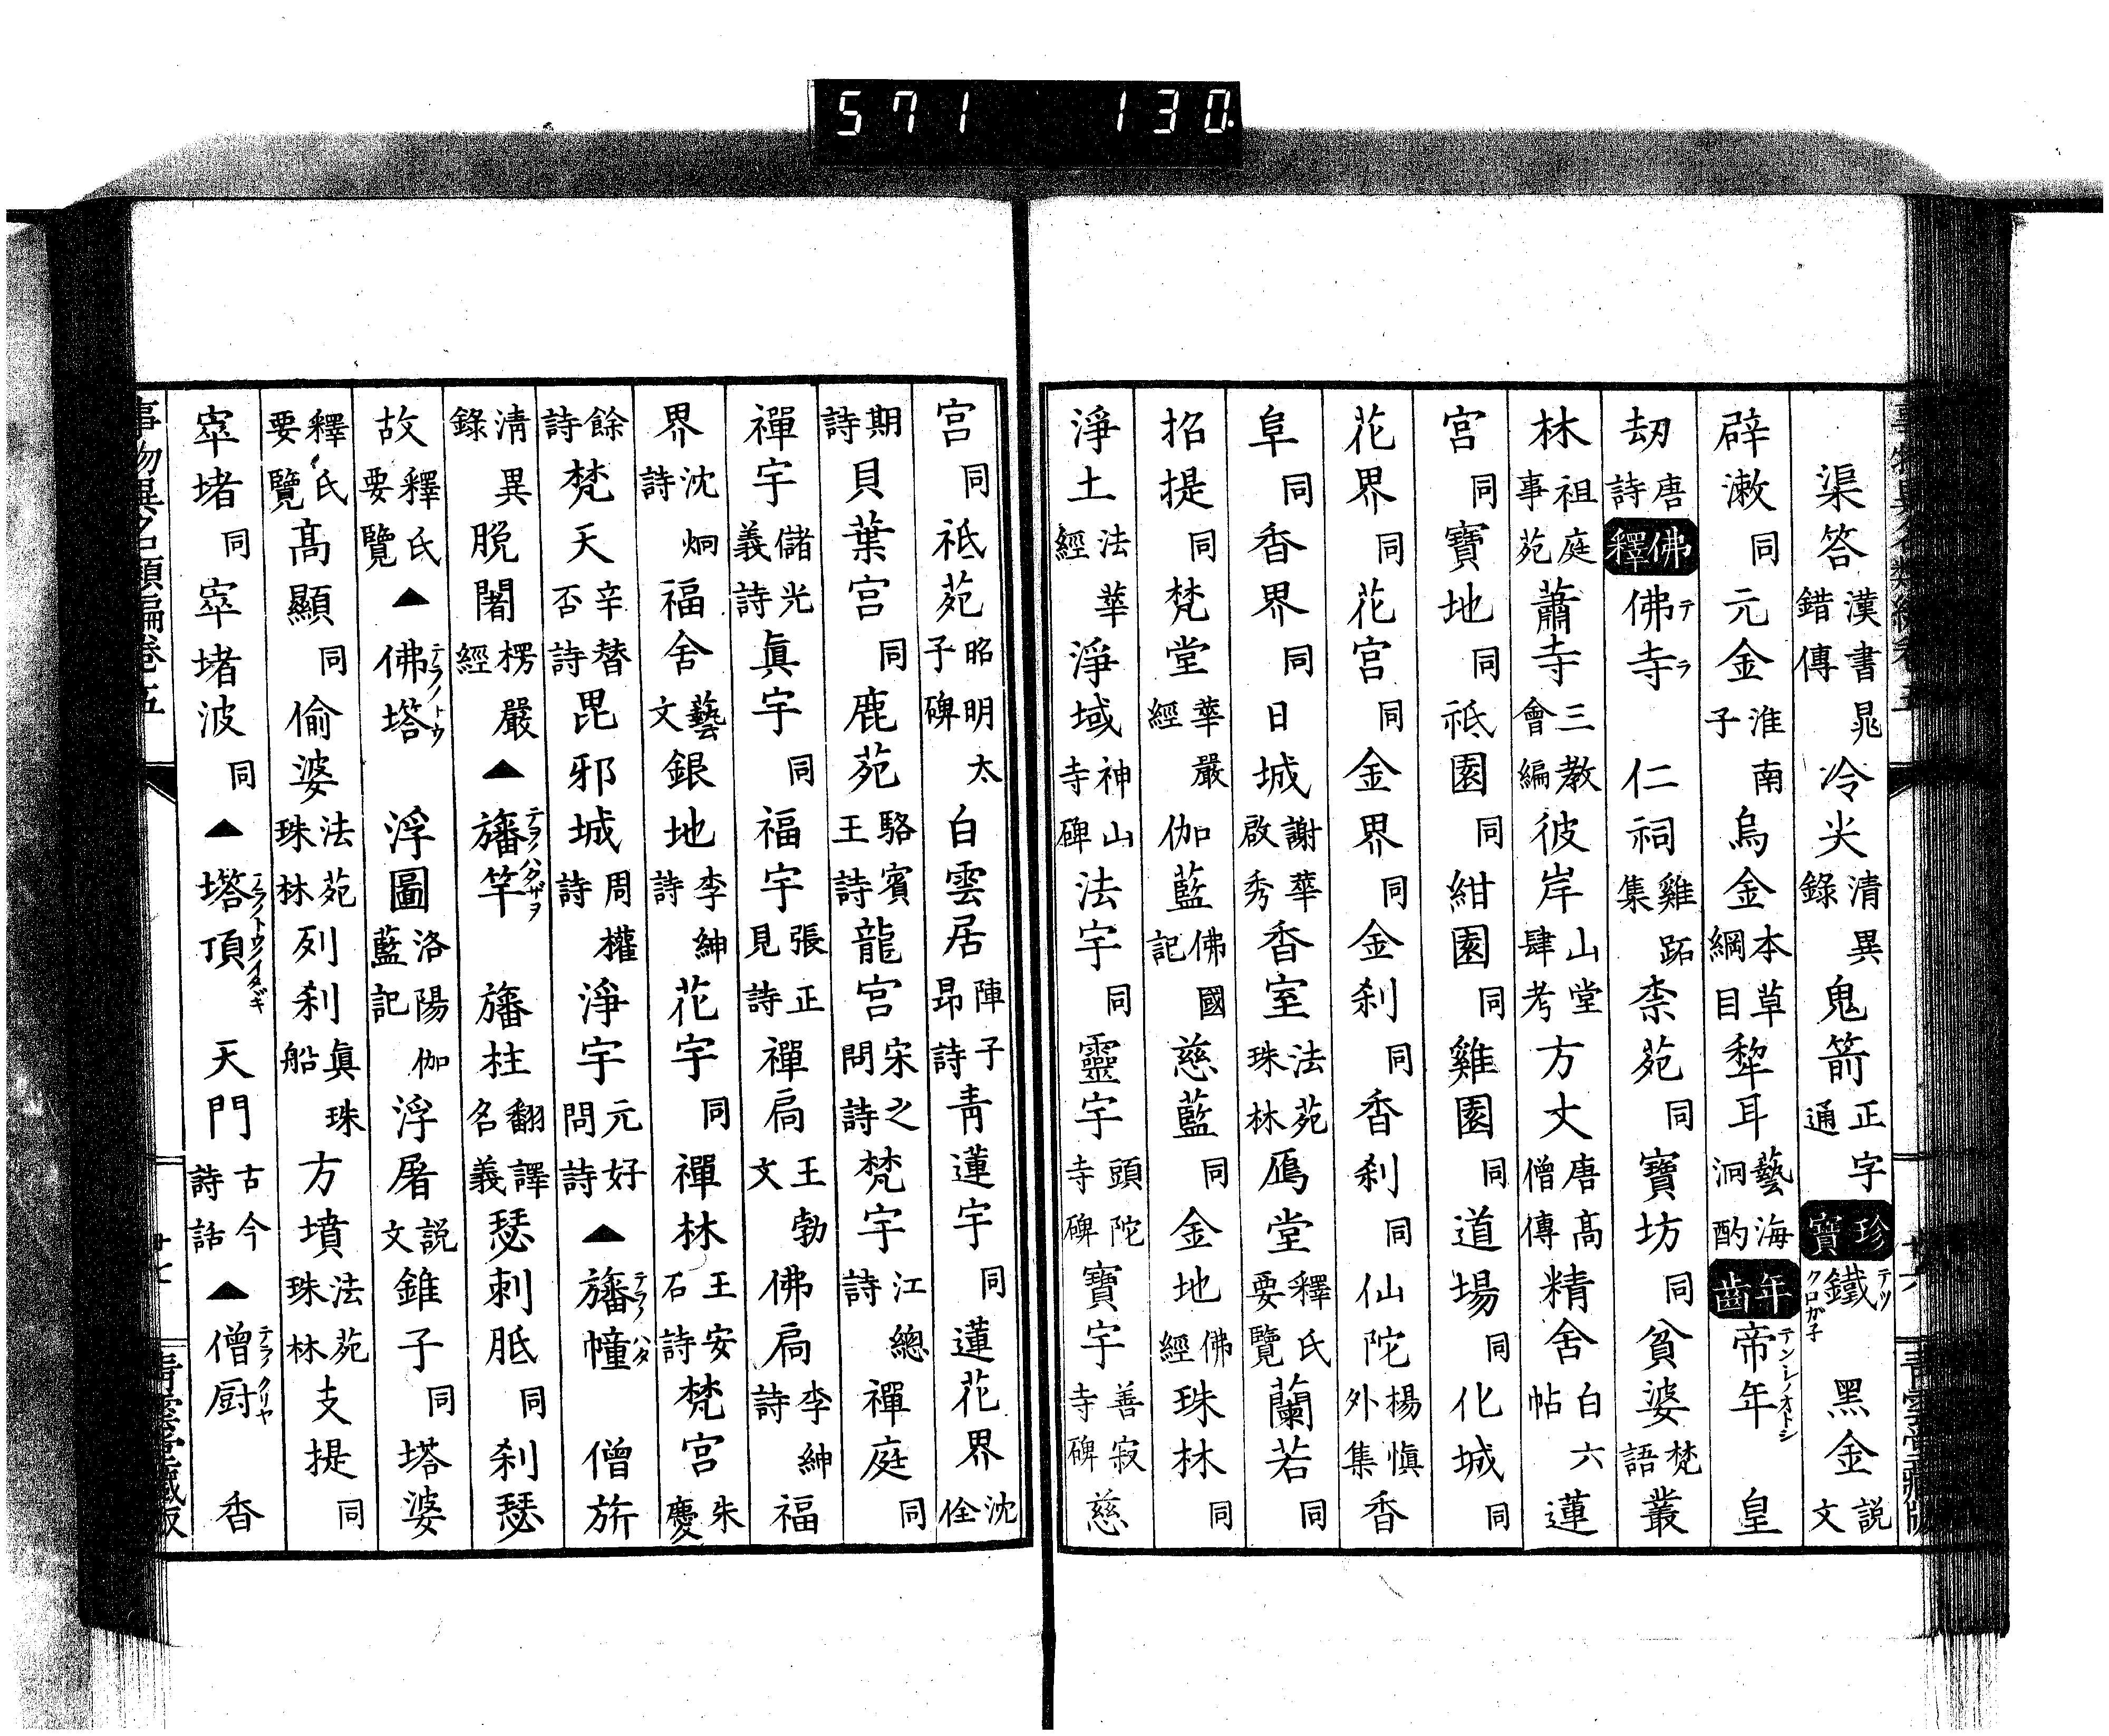 571 130
渠答漢書晁錯傳冷尖清異錄鬼箭正字通珍寶鐵テツクロカ子黑金説文
辟漱同元金淮南子烏金本草綱目犂耳藝海泂酌年齒帝年テンシノオトシ皇
刼唐詩佛釋佛寺テラ仁祠雞跖集柰苑同寶坊同貧婆梵語叢
林祖庭事苑蕭寺三教會編彼岸山堂肆考方丈唐高僧傳精舍白六帖蓮
宮同寶地同祗園同紺園同雞園同道場同化城同
花界同花宮同金界同金刹同香刹同仙陀楊慎外集香
阜同香界同日城謝華啟秀香室法苑珠林鴈堂釋氏要覽蘭若同
招提同梵堂華嚴經伽藍佛國記慈藍同金地佛經珠林同
淨土法華經淨域神山寺碑法宇同靈宇頭陀寺碑寶宇善寂寺碑慈
宮同祗苑昭明太子碑白雲居陣子昂詩青蓮宇同蓮花界沈佺
期詩貝葉宮同鹿苑駱賓王詩龍宮宋之問詩梵宇江總詩禪庭同
禪宇儲光義詩眞宇同福宇張正見詩禪扃王勃文佛扃李紳詩福
界沈炯詩福舍藝文銀地李紳詩花宇同禪林王安石詩梵宮朱慶
餘詩梵天辛替否詩毘邪城周權詩淨宇元好問詩▲旛幢テラノハタ僧旂
清異錄脱闍楞嚴經▲旛竿テラノハタザヲ旛柱翻譯名義瑟刺胝同刹瑟
故釋氏要覽▲佛塔テラノトウ浮圖洛陽伽藍記浮屠説文錐子同塔婆
釋氏要覽高顯同偷婆法苑珠林列刹眞珠船方墳法苑珠林支提同
窣堵同窣堵波同▲塔頂テラノトウノイタヾキ天門古今詩話▲僧厨テラノクリヤ香
事物異名類編卷五 廿七 青雲堂藏版